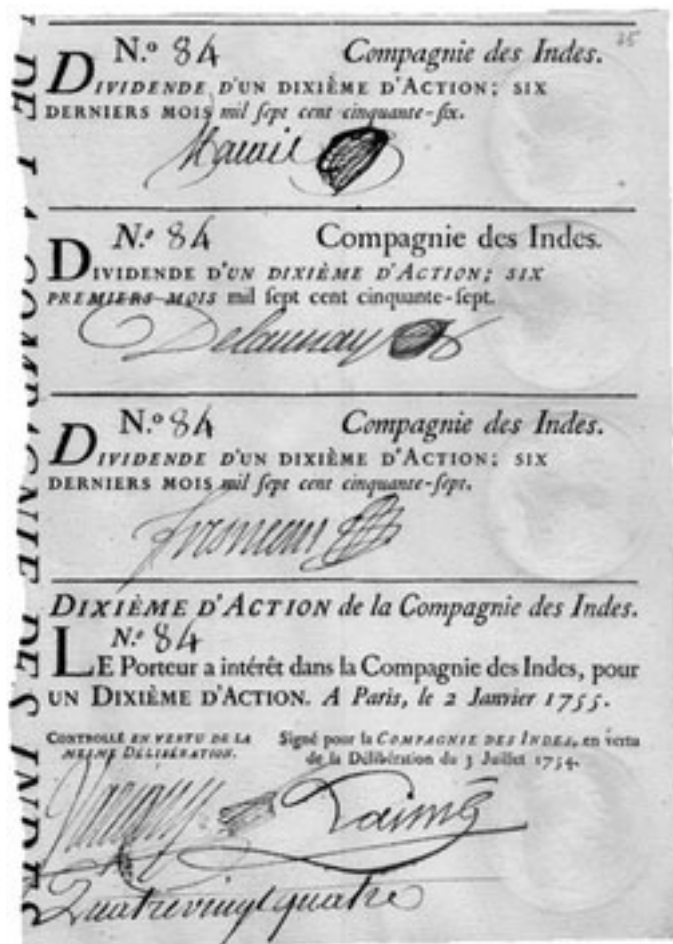 N.º 84 Compagnie des Indes. 35
DIVIDENDE D'UN DIXIÈME D'ACTION; SIX
DERNIERS MOIS mil ſept cent cinquante-ſix.
N.º 84 Compagnie des Indes.
DIVIDENDE D'UN DIXIÈME D'ACTION; SIX
PREMIERS MOIS mil ſept cent cinquante-ſept.
Delaunay
N.º 84 Compagnie des Indes.
DIVIDENDE D'UN DIXIÈME D'ACTION; SIX
DERNIERS MOIS mil ſept cent cinquante-ſept.
DIXIÈME D'ACTION de la Compagnie des Indes.
N.º 84
LE Porteur a intérêt dans la Compagnie des Indes, pour
UN DIXIÈME D'ACTION. A Paris, le 2 Janvier 1755.
CONTROLLÉ EN VERTU DE LA
MESME DÉLIBÉRATION.
Signé pour la COMPAGNIE DES INDES, en vertu
de la Délibération du 3 Juillet 1754.
Quatrevingt quatre
DE LA COMPAGNIE DES INDES